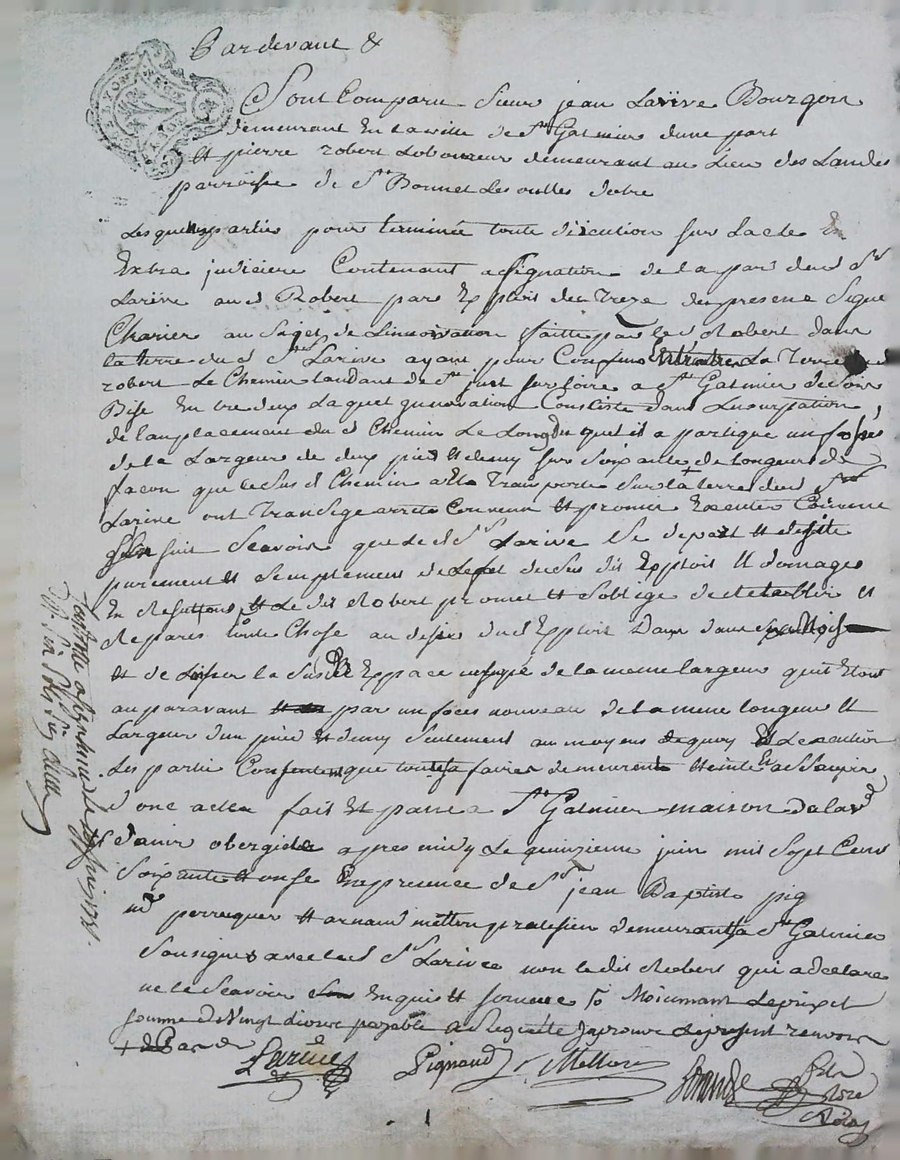 Pardevant &
Sont Comparu Sieur jean Larive Bourgois
demeurant En la ville de St Galmier dune part
Et pierre robert Laboureur demeurant au Lieu des Landes
parroisse de St Bonnet Les oulles dotre
Lesquelles partie pour terminée toute disicution sur Lacte
Extra judiciere Contenant assignation de la par dud Sr
Larive aud Robert par Exploit du Treze du presens Signe
Charier au Suget de Linnovation faitte par Led Robert dans
la terre dud Sr Larive ayant pour Confins La Terre dud
robert Le Chemin tandant de St just sur Loire a St Galmier de Soir
Bise Entre deux Laquel ynnovation Consiste dans Lusurpation
de Lanplacement du d Chemin Le Long du quel il a partique un fossés
de la Largeur de deux pied et demy sur Soixante + de longeur de
facon que le Sus d Chemin a Ete Transporte Sur la terre dud Sr
Larive ont Transige arrete Convenu Et promis Executer Comme
Sen suit Scavoir que Led Sr Larive Se depart Et desiste
purement Et Semplement de Lefet du Sus dit Exploit Et domages
Et Le dit Robert promet Et Soblige de Retablir Et
Repares toute Chose au desir dud Exploit Dans
Et de Laiser la Susd Espace usurpé de la meme largeur quil Etoit
au paravant par un foces nouveau de la meme longeur Et
Largeur dun pied Et demy Seulement au moyens de quoy
Les partie Consentent que toutes afaires demeurent Eteinte Et assoupie
Donc acte fait Et passe a St Galmier maison de la ve
obergiste apres midy Le quinzieme juin mil Sept Cent
Soixante Et onse En presence de Sr jean Baptiste pig
nd perruquier Et arnaud metton praticien demeurants a St Galmier
Sousignes avec led Sr Larivee non ledit Robert qui a declare
ne le Scavoir Enquis Et somme Moienant Leprix et
somme de Vingt payable a Sa Requete Japrouve Le present renvoy
Larive Pignaud Metton